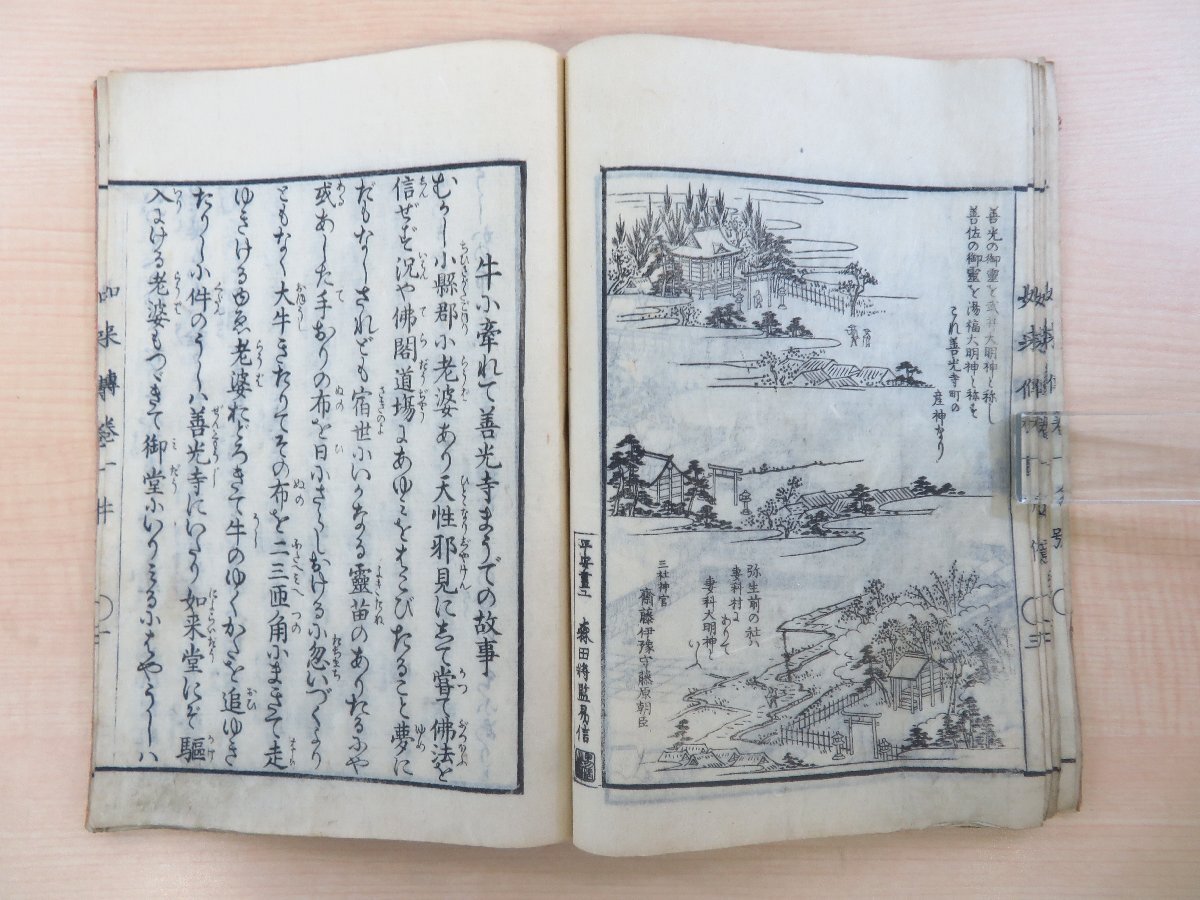 善光の御靈を武井大明神と称し
善佐の御靈を湯福大明神と称す
これ善光寺町の
産神なり
弥生前の社ハ
妻科村に ありて
妻科大明神と
いふ
三社神官
齋藤伊豫守藤原朝臣
平安畫工 森田将監易信
牛に牽れて善光寺まうでの故事
むかし小縣郡に老婆あり天性邪見にして嘗て佛法を
信ぜず况や佛閣道場にあゆミをはこびたること夢に
だもなしされども宿世にいかなる靈苗のありたるにや
或あした手おりの布を日にさらしおける小忽いづくより
ともなく大牛きたりてその布を二三匝角にまきて走
ゆきける由ゑ老婆おどろきて牛のゆくかたを追ゆき
たりしに件のうしハ善光寺にいたり如来堂にぞ驅
入にける老婆もつゞきて御堂にいりミるにはやうしハ
如来傳卷一 廿